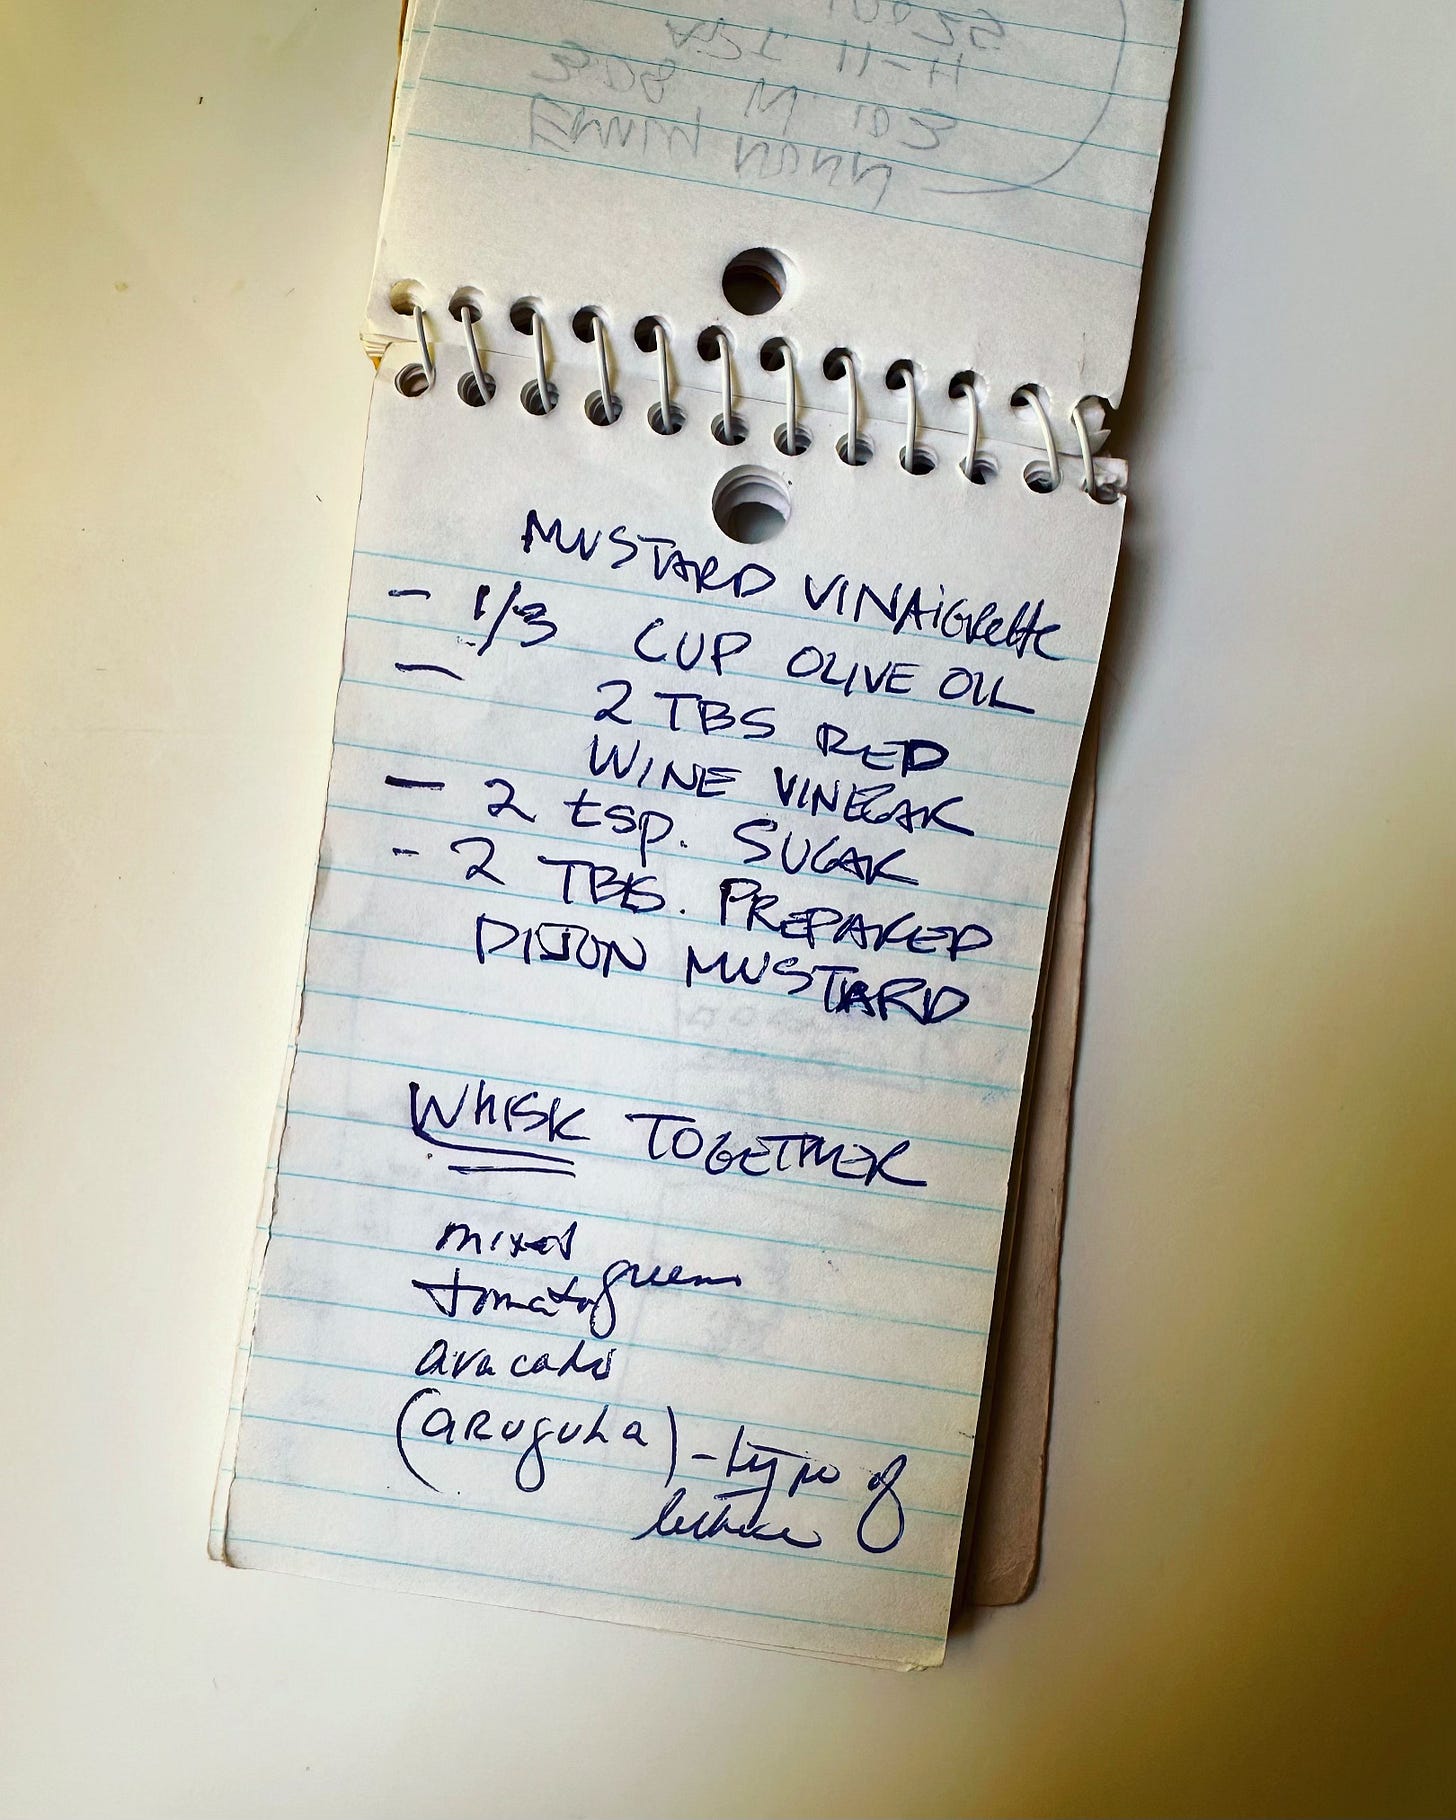 MUSTARD VINAiGRette
- 1/3 CUP OLIVE OIL
- 2 TBS RED
WINE VINEGAR
- 2 tsp. SUGAR
- 2 TBS. PREPARED
DIJON MUSTARD
WhISK TOGETHER
mixed greens
tomato
avacado
(arugula) - type of
lettuce